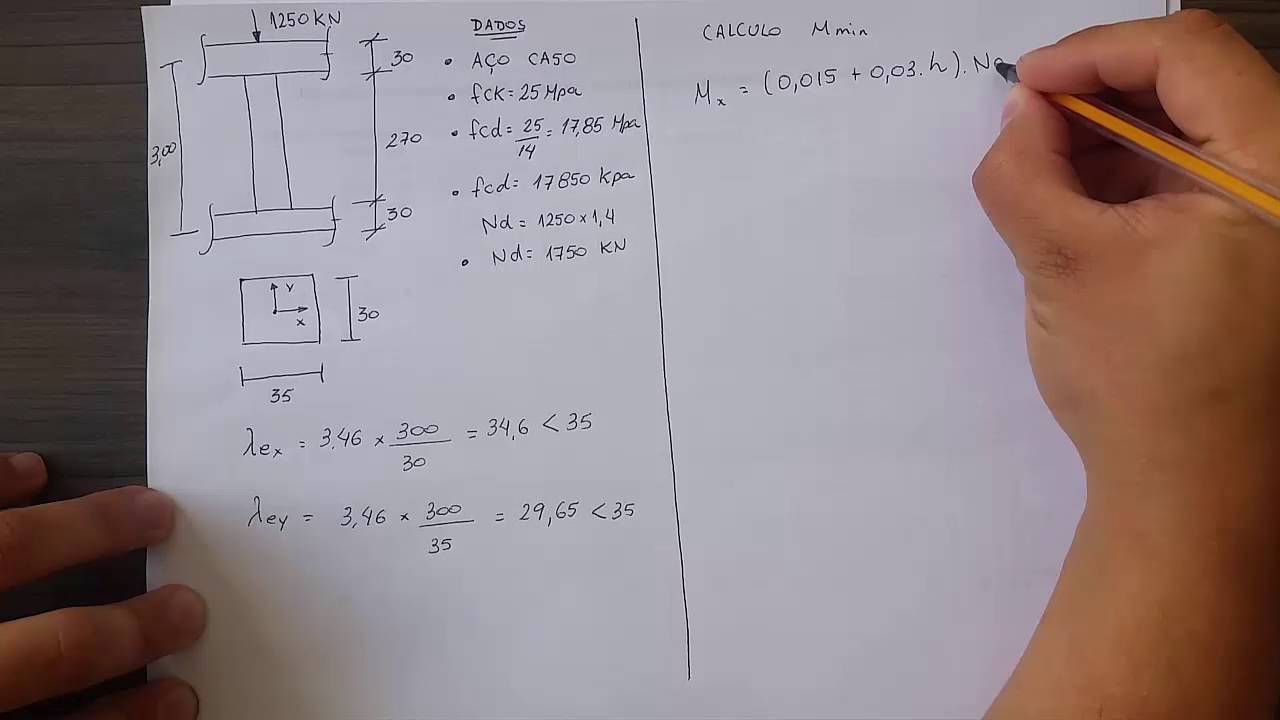 1250 KN
30
270
3,00
30
Y
X
30
35
DADOS
• AÇO CA50
• fck = 25 Mpa
• fcd = 25/14 = 17,85 Mpa
• fcd = 17850 Kpa
Nd = 1250 × 1,4
• Nd = 1750 KN
λex = 3,46 × 300/30 = 34,6 < 35
λey = 3,46 × 300/35 = 29,65 < 35
CALCULO Mmin
Mx = (0,015 + 0,03.h).N